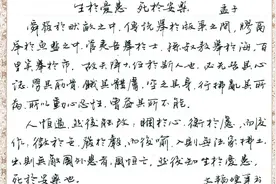 生於憂患 死於安樂 孟子
舜發於畎畝之中，傅說舉於版築之間，膠鬲
舉於魚鹽之中，管夷吾舉於士，孫叔敖舉於海，百
里奚舉於市。故天降大任於斯人也，必先苦其心
志，勞其筋骨，餓其體膚，空乏其身，行拂亂其所
為，所以動心忍性，曾益其所不能。
人恒過，然後能改；困於心，衡於慮，而後
作；徵於色，發於聲，而後喻。入則無法家拂士，
出則無敵國外患者，國恒亡。然後知生於憂患，
死於安樂也。